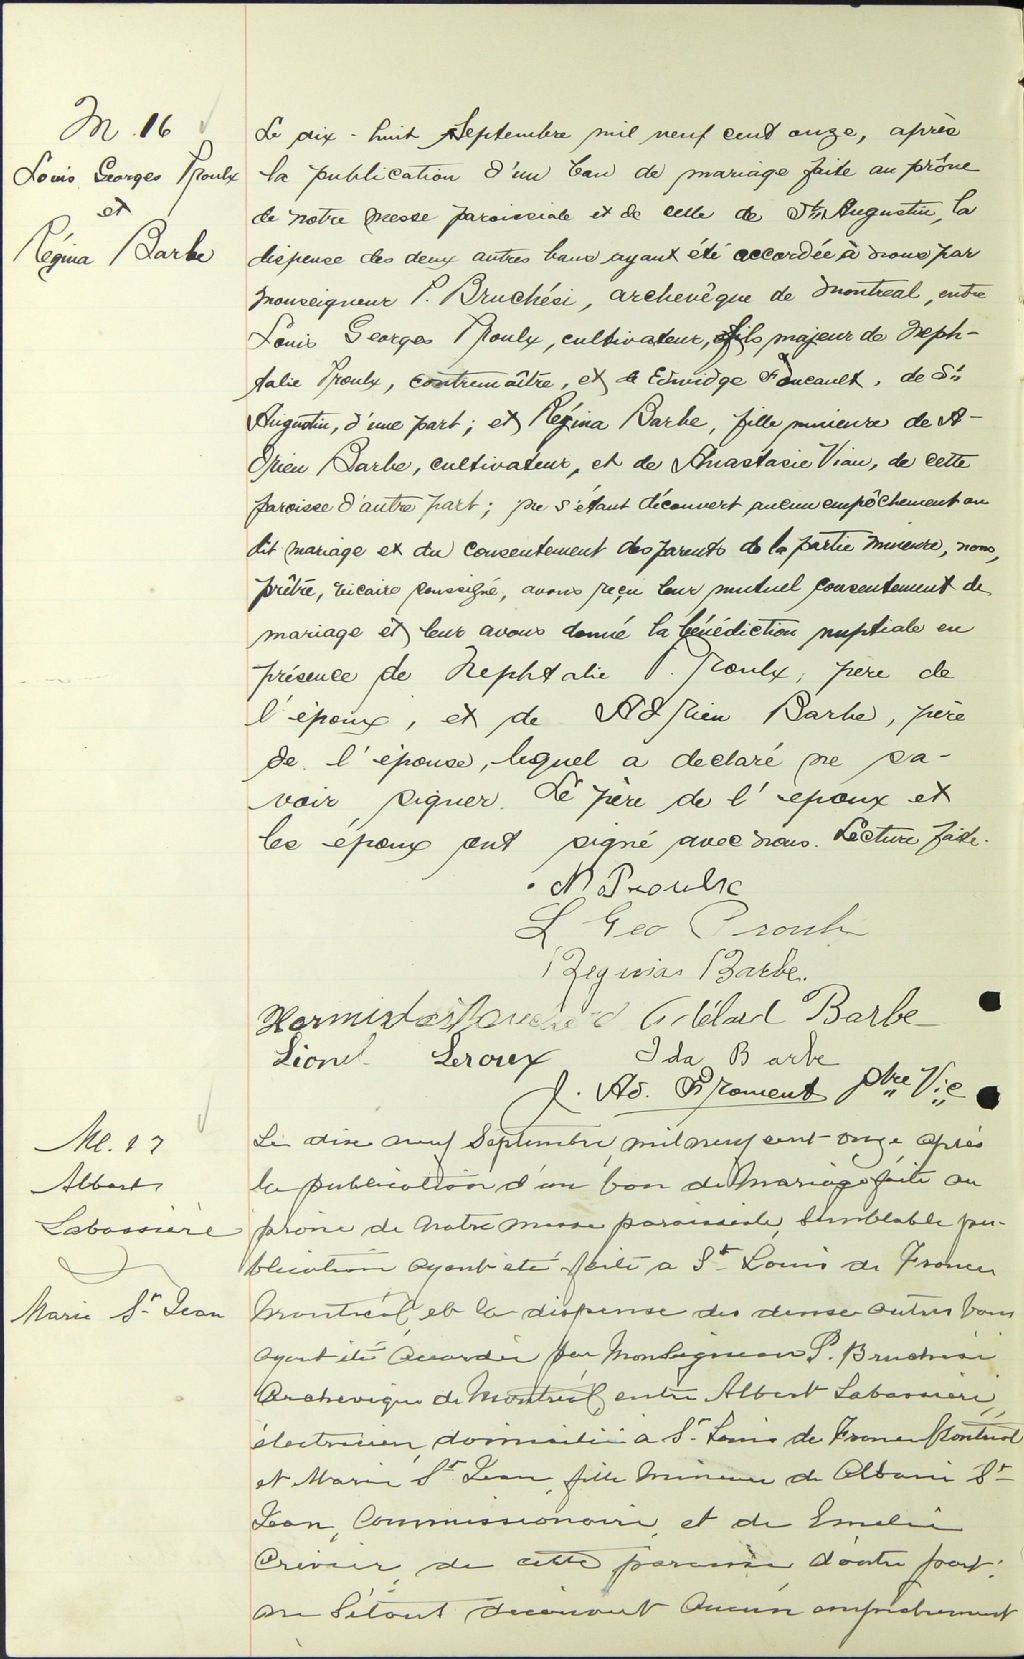 M. 16
Louis Georges Proulx
et
Régina Barbe
Le dix-huit Septembre mil neuf cent onze, après
la publication d'un ban de mariage faite au prône
de notre messe paroissiale et de celle de Ste Augustin, la
dispense des deux autres bans ayant été accordée à nous par
Monseigneur P. Bruchési, archevêque de Montreal, entre
Louis Georges Proulx, cultivateur, fils majeur de Neph-
talie Proulx, contremaître, et de Edwidge Foucault, de St
Augustin, d'une part; et Régina Barbe, fille mineure de A-
drien Barbe, cultivateur, et de Anastasie Viau, de cette
paroisse d'autre part; ne s'étant découvert aucun empêchement au
dit mariage et du consentement des parents de la partie mineure, nous,
prêtre, vicaire soussigné, avons reçu leur mutuel consentement de
mariage et leur avons donné la bénédiction nuptiale en
présence de Nephtalie Proulx, père de
l'époux, et de Adrien Barbe, père
de l'épouse, lequel a declaré ne sa-
voir signer. Le père de l'epoux et
les époux ont signé avec nous. Lecture faite.
N Proulx
L Geo Proulx
Reginas Barbe.
Hermisdas Adélard Barbe
Lionel Leroux Ida Barbe
J. Ad. Froment ptre Vic
M. 17
Albert
Labossière
Marie St Jean
Le dix neuf Septembre, mil neuf cent onze après
la publication d'un ban de Mariage faite au
prône de notre messe paroissiale, semblable pu-
blication ayant été faite a St Louis de France
Montréal et la dispense des deux autres bans
ayant été accordée par Monseigneur P. Bruchési
Archevêque de Montréal, entre Albert Labossière,
électricien, domicilié à St Louis de France Montréal
et Marie St Jean, fille mineure de Albani St
Jean, Commissionaire, et de Emelie
Crevier, de cette paroisse d'autre part;
ne s'étant découvert aucun empêchement